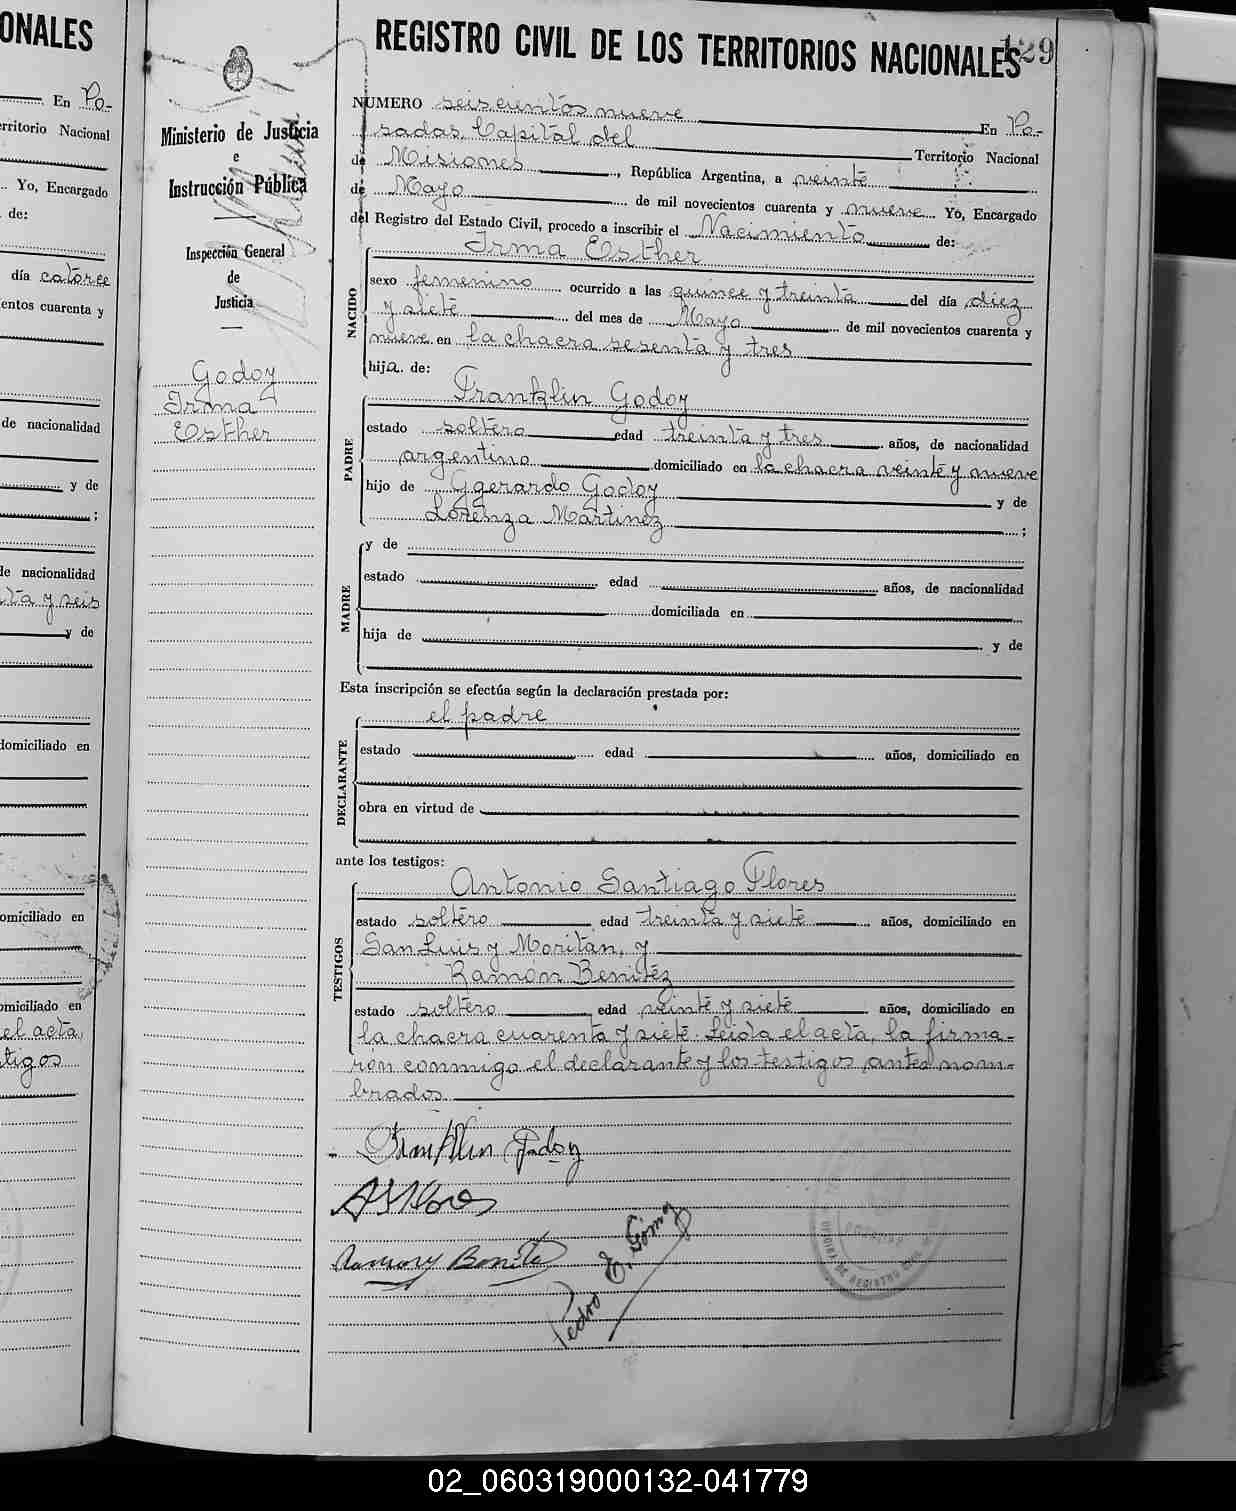 ONALES
En Po-
erritorio Nacional
Yo, Encargado
de:
día catorce
entos cuarenta y
de nacionalidad
y de
;
de nacionalidad
ta y seis
y de
domiciliado en
omiciliado en
omiciliado en
el acta,
tigos
Ministerio de Justicia
e
Instrucción Pública
Inspección General
de
Justicia
Godoy
Irma
Esther
129
REGISTRO CIVIL DE LOS TERRITORIOS NACIONALES
NUMERO seiscientos nueve En Po-
sadas, Capital del Territorio Nacional
de Misiones, República Argentina, a veinte
de Mayo de mil novecientos cuarenta y nueve Yo, Encargado
del Registro del Estado Civil, procedo a inscribir el Nacimiento de:
NACIDO
Irma Esther
sexo femenino ocurrido a las quince y treinta del día diez
y siete del mes de Mayo de mil novecientos cuarenta y
nueve en la chacra sesenta y tres
hija de:
PADRE
Franklin Godoy
estado soltero edad treinta y tres años, de nacionalidad
argentino domiciliado en la chacra veinte y nueve
hijo de Ggerardo Godoy y de
Lorenza Martinez ;
MADRE
y de
estado edad años, de nacionalidad
domiciliada en
hija de y de
Esta inscripción se efectúa según la declaración prestada por:
DECLARANTE
el padre
estado edad años, domiciliado en
obra en virtud de
ante los testigos:
TESTIGOS
Antonio Santiago Flores
estado soltero edad treinta y siete años, domiciliado en
San Luis y Moritan, y
Ramón Benitéz
estado soltero edad veinte y siete años, domiciliado en
la chacra cuarenta y siete. Leida el acta, la firma-
rón conmigo el declarante y los testigos antes nom-
brados.
Franklin Godoy
ASFlores
Ramon Benite
Pedro E. Gómez
OFICINA DE REGISTRO CIVIL
02_060319000132-041779